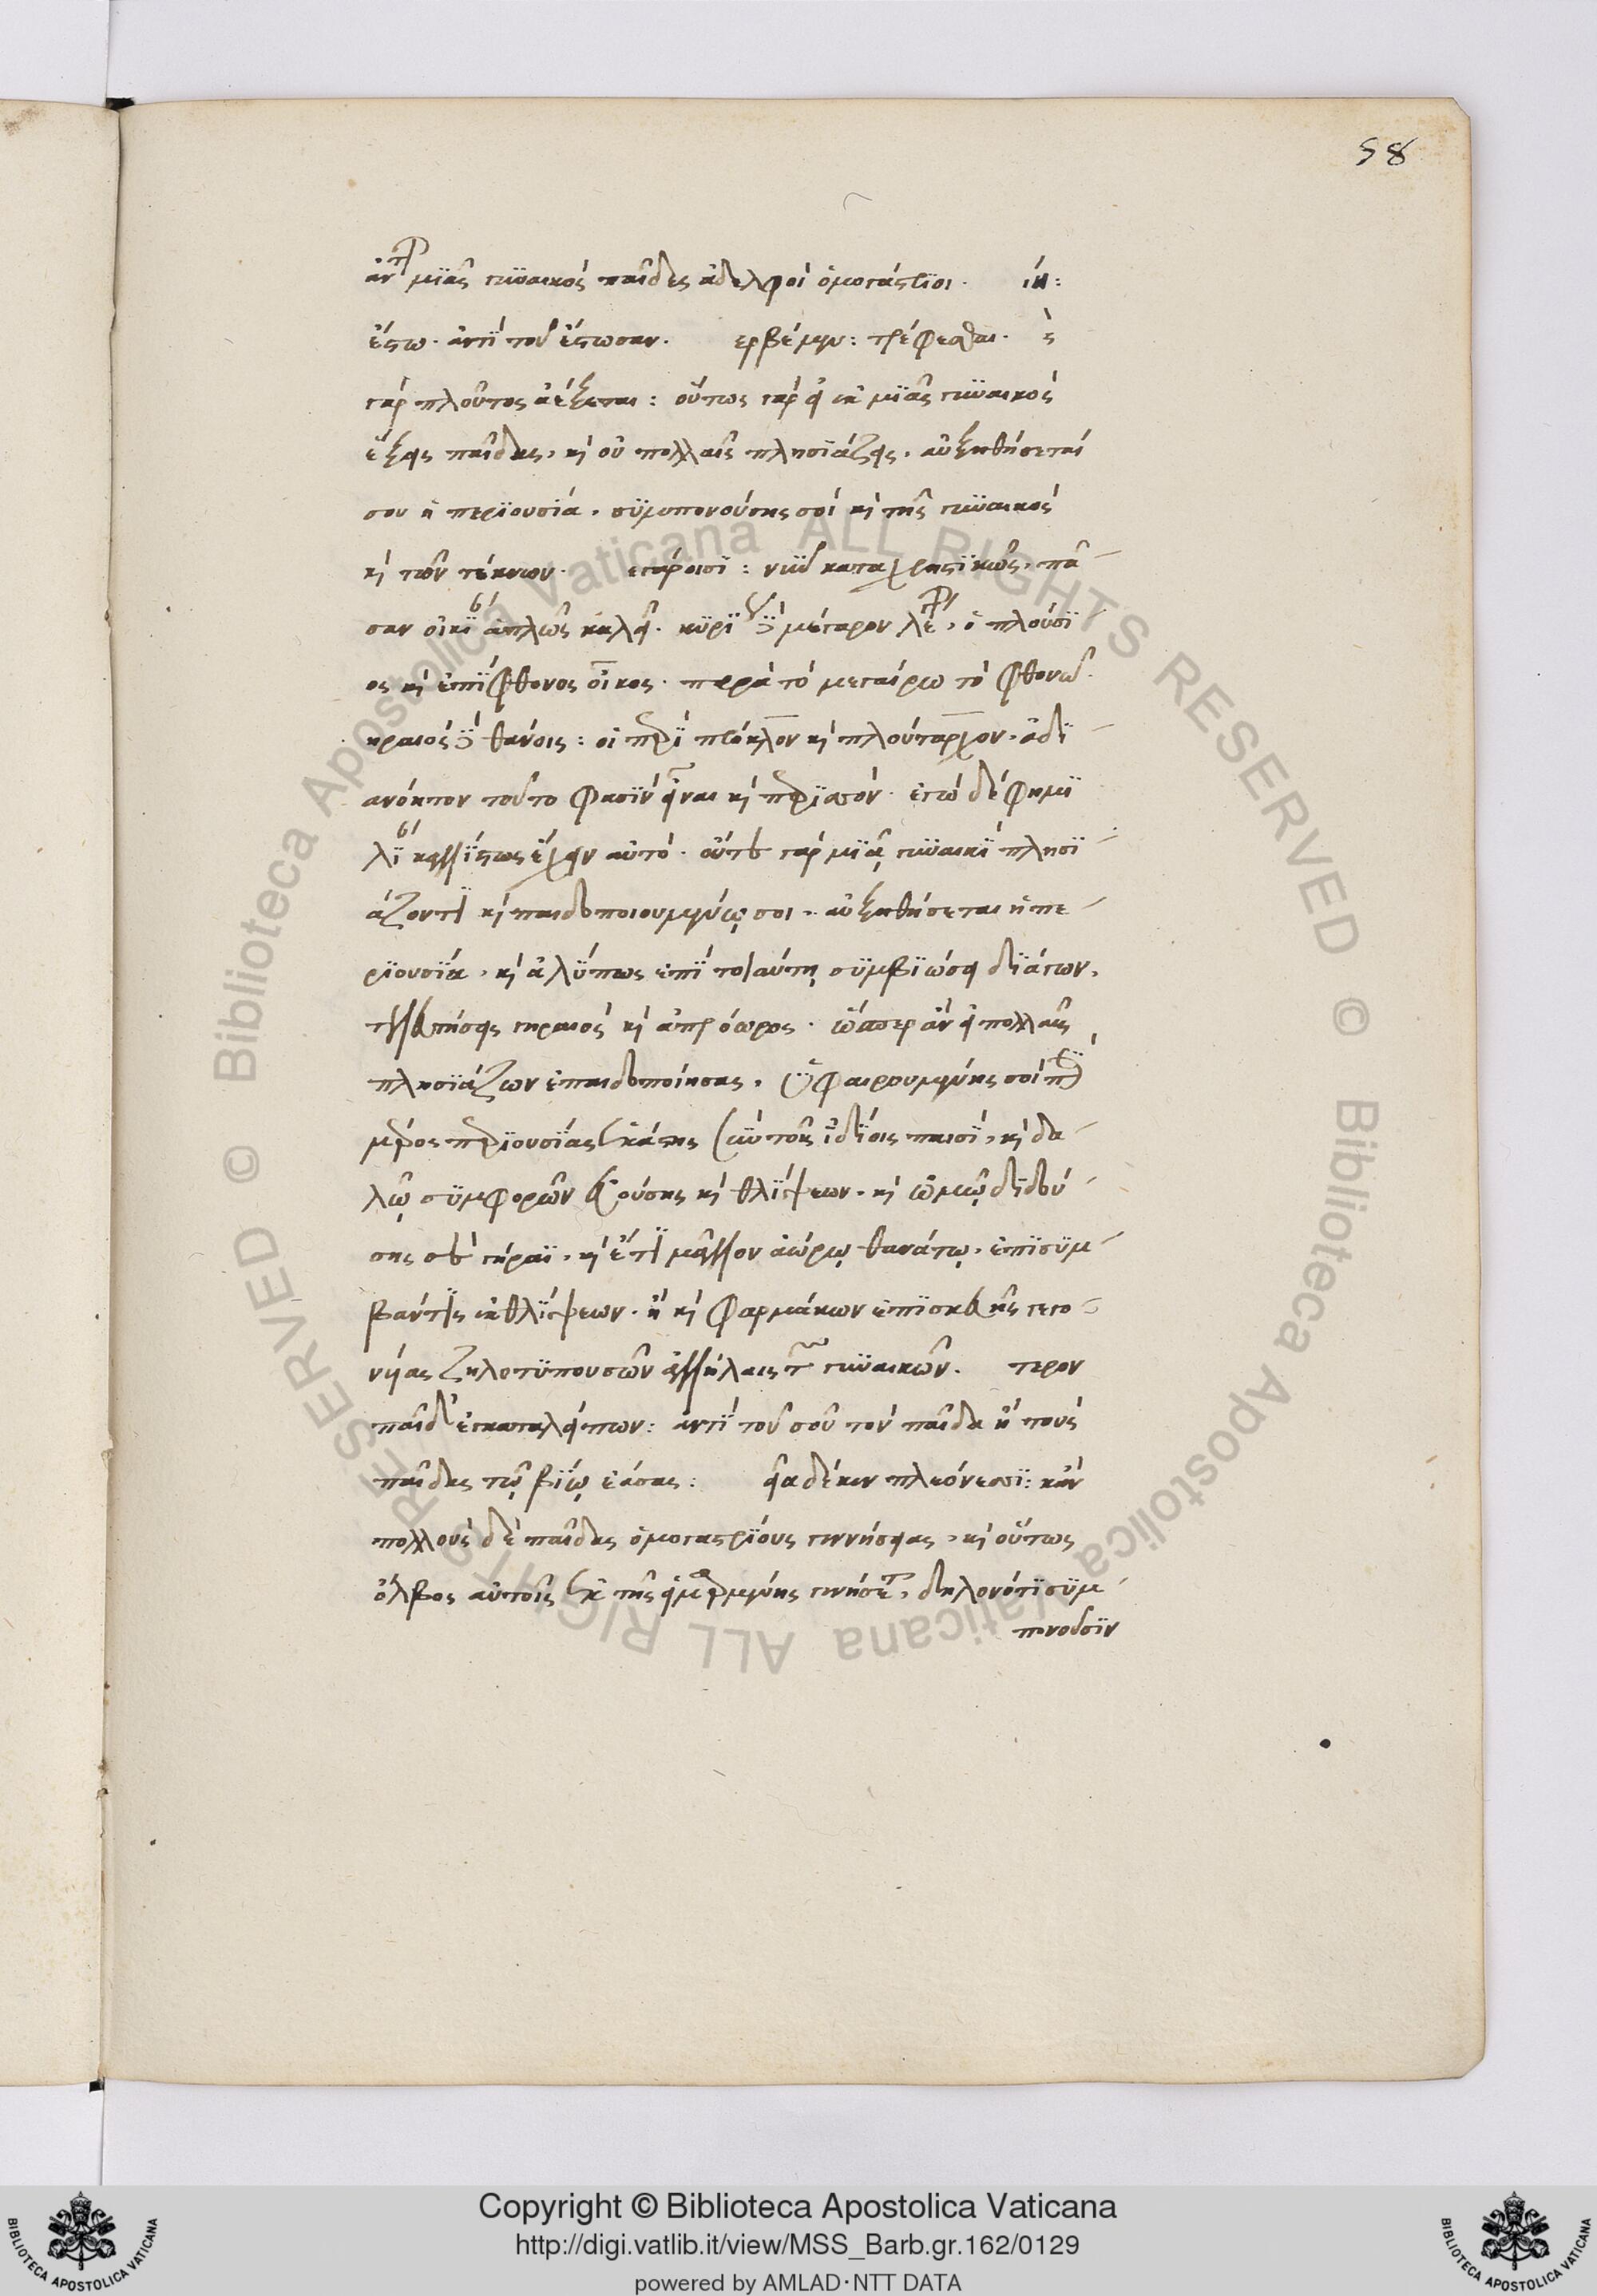 58
μιᾶς γυναικὸς παῖδες ἀδελφοὶ ὁμογάστριοι.
ἔστω. ἀντὶ τοῦ ἔστωσαν. φερβέμεν: τρέφεσθαι. ὡς
γὰρ πλοῦτος ἀέξεται: οὕτως γὰρ εἰ ἐκ μιᾶς γυναικὸς
ἕξεις παῖδας, καὶ οὐ πολλαῖς πλησιάζεις. αὐξηθήσεταί
σου ἡ περιουσία. συμπονούσης σοι καὶ τῆς γυναικὸς
καὶ τῶν τέκνων. μεγάροισι: νῦν καταχρηστικῶς. πᾶ
σαν οἰκίαν ἁπλῶς καλεῖ. κυρίως δὲ μέγαρον λέγεται, ὁ πλούσι
ος καὶ ἐπίφθονος οἶκος. παρὰ τὸ μεγαίρω τὸ φθονῶ.
γηραιὸς δὲ θάνοις: οἱ περὶ πρόκλον καὶ πλούταρχον. ἀδι
ανόητον τοῦτο φασὶν εἶναι καὶ περισσόν. ἐγὼ δέ φημι
λίαν καλλίστως ἔχειν αὐτό. οὕτω γὰρ μιᾷ γυναικὶ πλησι
άζοντι καὶ παιδοποιουμένῳ σοι. αὐξηθήσεται ἡ πε
ριουσία. καὶ ἀλύπως ἐπὶ τοιαύτῃ συμβιώσει διάγων.
τελευτήσεις γηραιὸς καὶ οὐ πρόωρος. ὥσπερ ἂν εἰ πολλαῖς
πλησιάζων ἐπαιδοποίησας. ὑφαιρουμένης σοι
μέρος περιουσίας ἑκάστης σὺν τοῖς ἰδίοις παισὶ, καὶ δα
λῷ συμφορῶν εὑούσης καὶ θλίψεων. καὶ ὠμῷ διδού
σης σε γήραϊ. καὶ ἔτι μᾶλλον ἀώρῳ θανάτῳ. ἐπισυμ
βάντι ἐκ θλίψεων. ἢ καὶ φαρμάκων ἐπισκευῆς γεγο
νυίας ζηλοτυπουσῶν ἀλλήλαις τῶν γυναικῶν. τερον
παῖδ' ἐγκαταλείπων: ἀντὶ τοῦ σοῦ τὸν παῖδα ἢ τοὺς
παῖδας τῷ βίῳ ἐάσας: ῥεῖα δέ κεν πλεόνεσσι: κἂν
πολλοὺς δὲ παῖδας ὁμογαστρίους γεννήσειας. καὶ οὕτως
ὄλβος αὐτοῖς ἐκ τῆς εἱμαρμένης γενήσεται. δηλονότι συμ
πνοῦσιν
Copyright © Biblioteca Apostolica Vaticana
http://digi.vatlib.it/view/MSS_Barb.gr.162/0129
powered by AMLAD·NTT DATA